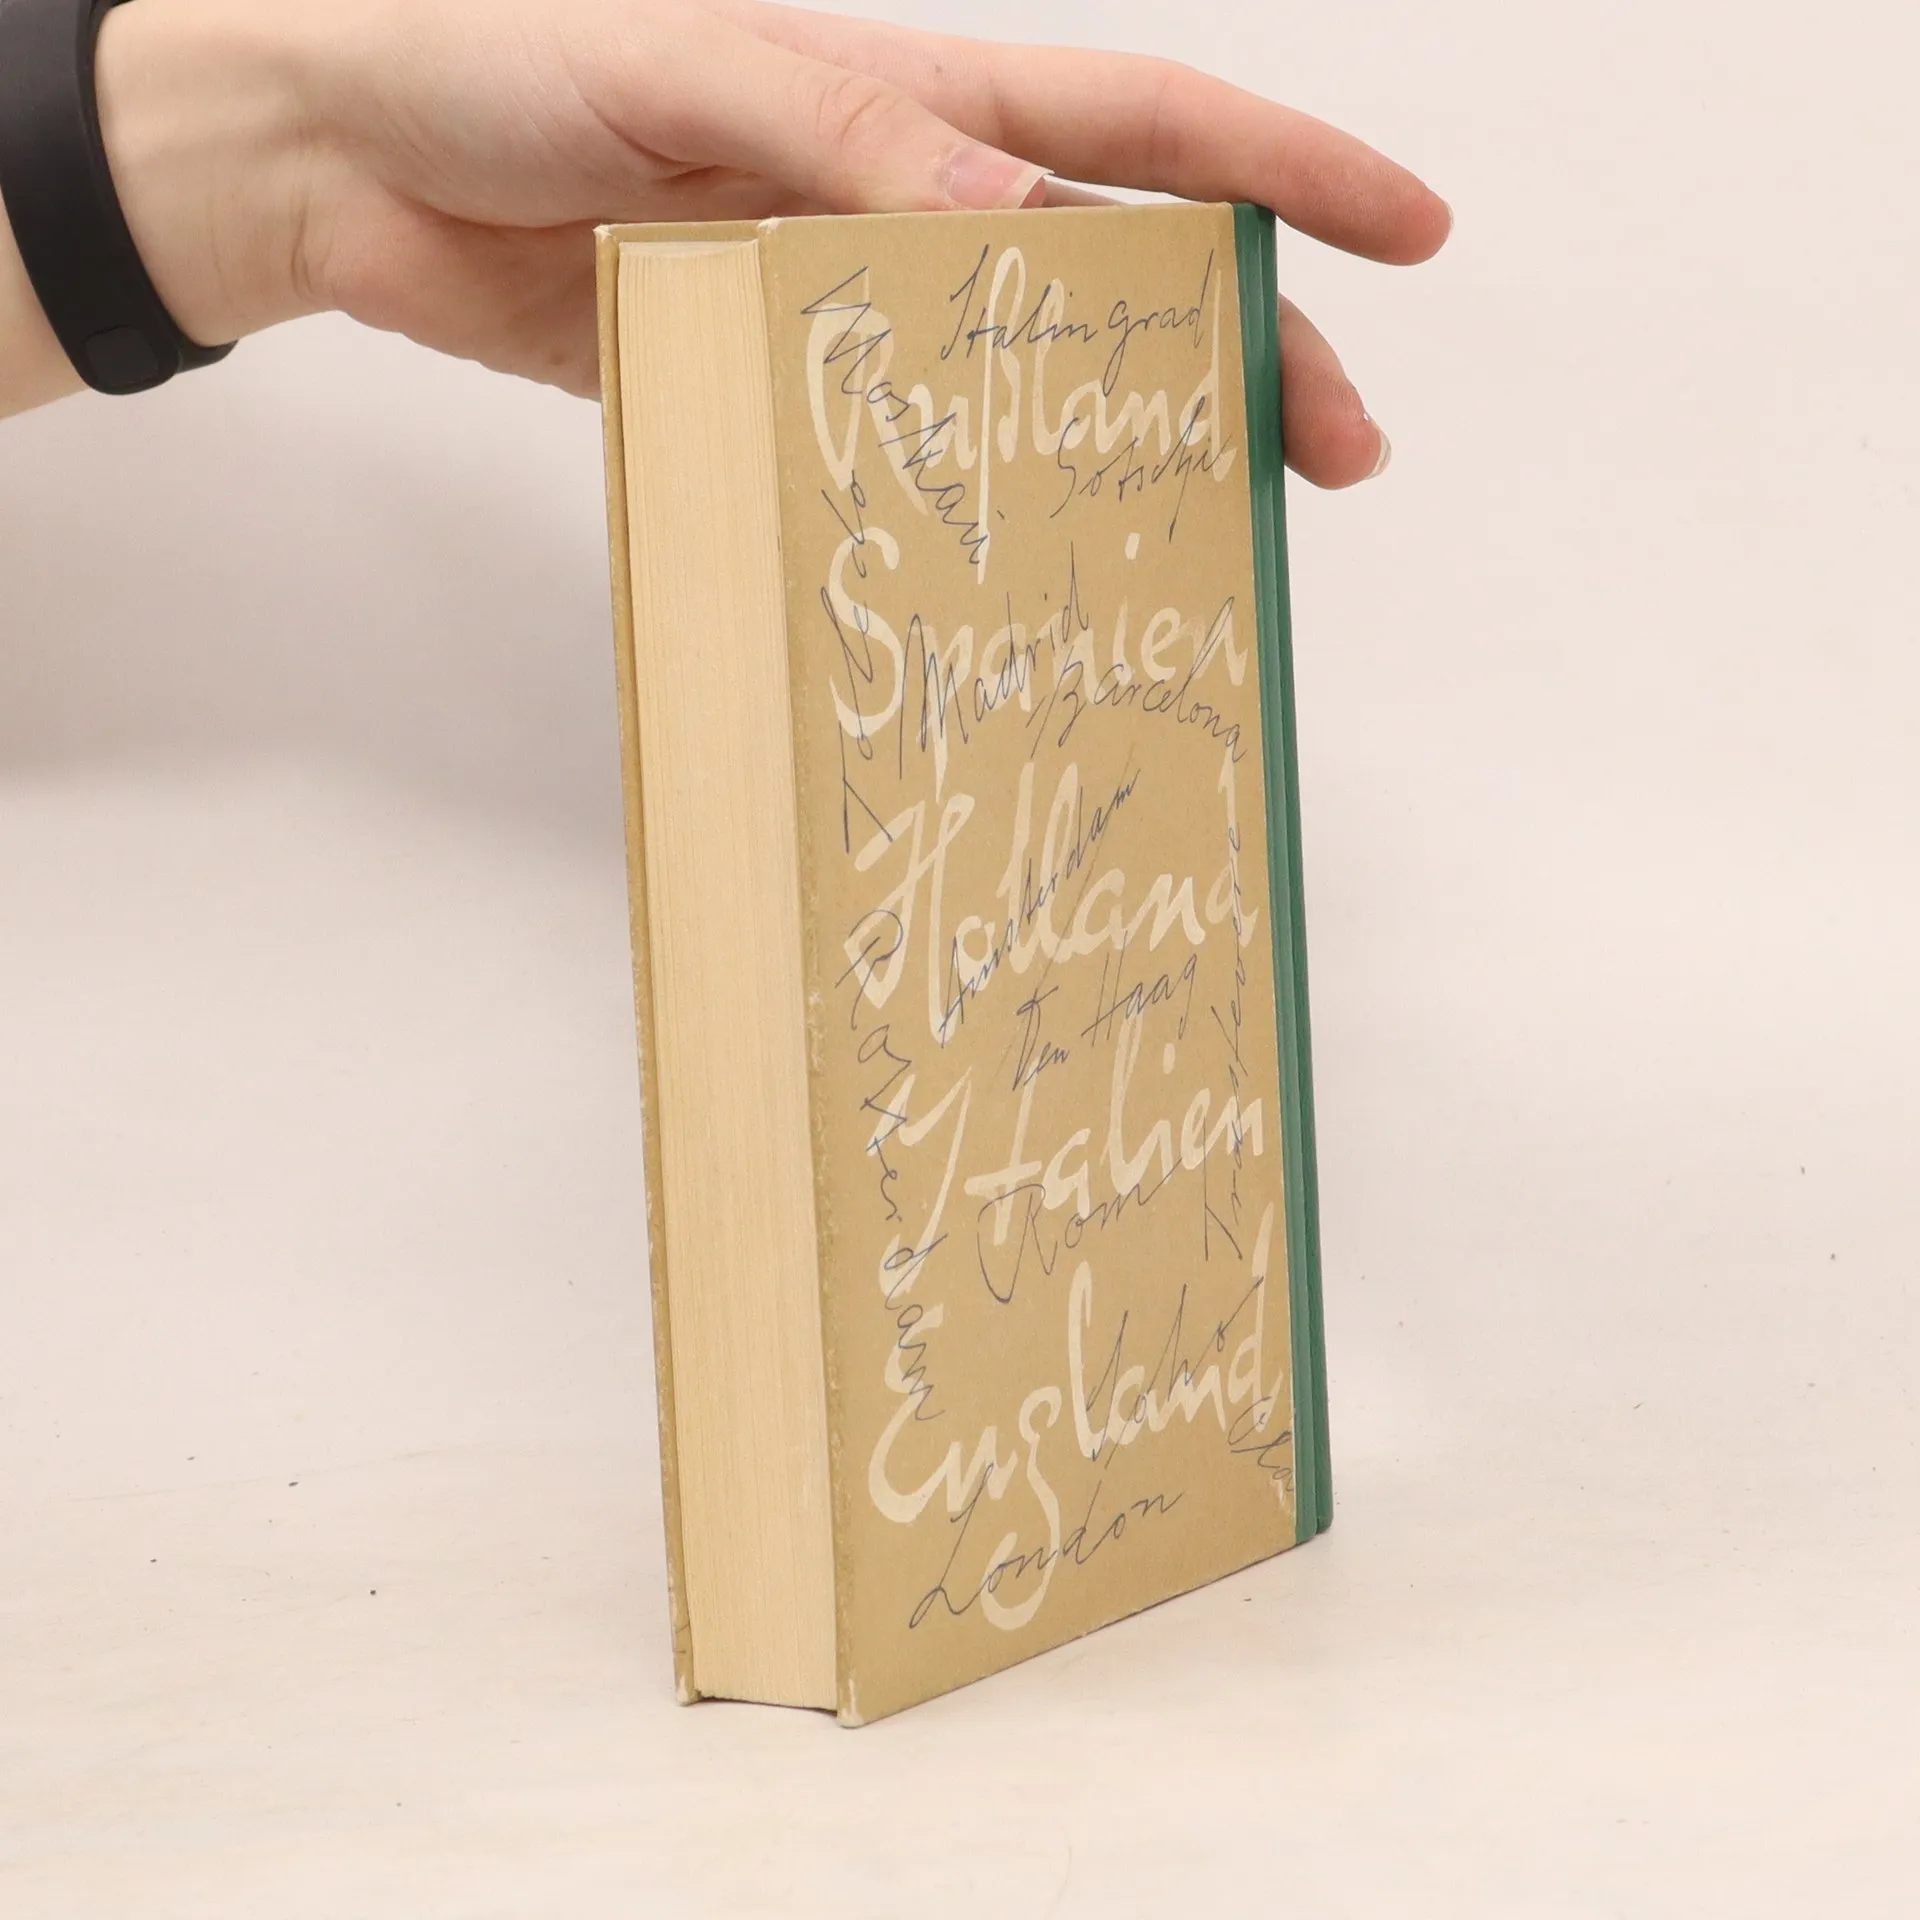 Stalingrad
Moskau
Rußland
Sotschi
Toledo
Spanien
Madrid
Barcelona
Holland
Amsterdam
Den Haag
Rotterdam
Italien
Rom
Trastevere
England
Soho
London